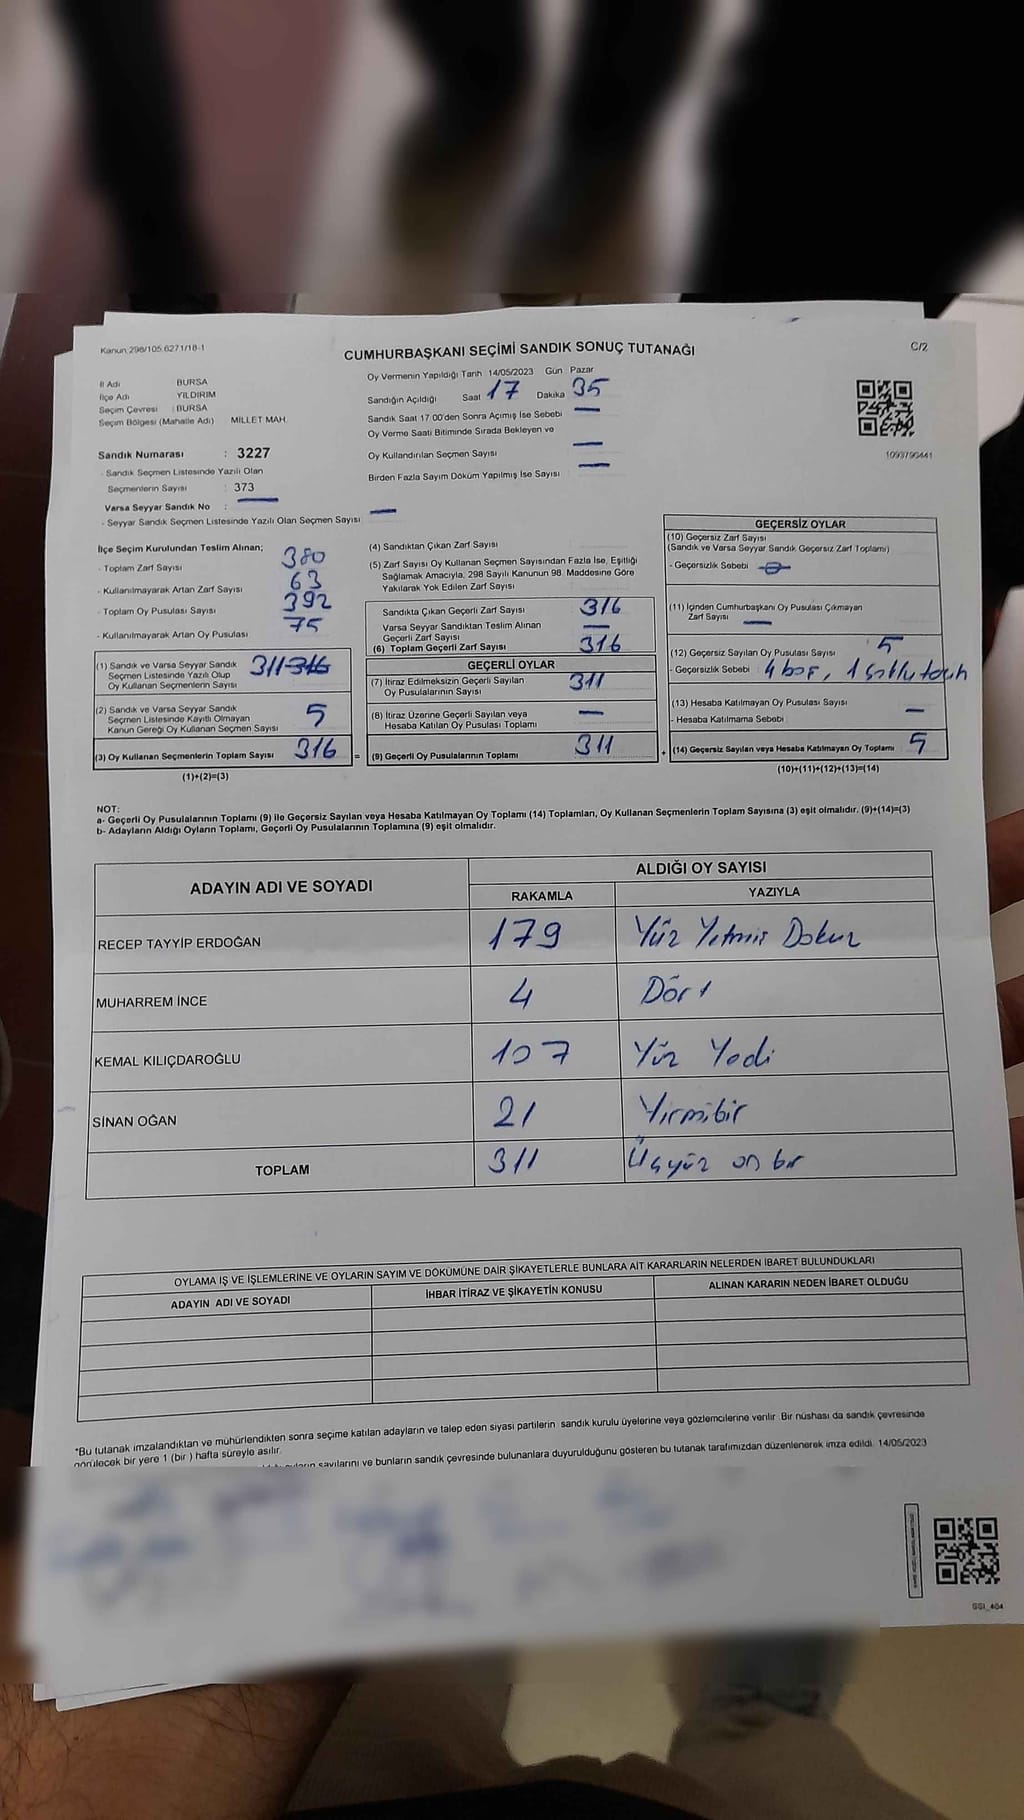 Kanun;298/105.6271/18-1
C/2
CUMHURBAŞKANI SEÇİMİ SANDIK SONUÇ TUTANAĞI
İl Adı BURSA
İlçe Adı YILDIRIM
Seçim Çevresi : BURSA
Seçim Bölgesi (Mahalle Adı) MİLLET MAH.
Oy Vermenin Yapıldığı Tarih 14/05/2023 Gün Pazar
Sandığın Açıldığı Saat 17 Dakika 35
Sandık Saat 17:00'den Sonra Açımış İse Sebebi —
Oy Verme Saati Bitiminde Sırada Bekleyen ve
Oy Kullandırılan Seçmen Sayısı —
Birden Fazla Sayım Döküm Yapılmış İse Sayısı —
1093790441
Sandık Numarası : 3227
- Sandık Seçmen Listesinde Yazılı Olan
Seçmenlerin Sayısı : 373
Varsa Seyyar Sandık No : —
- Seyyar Sandık Seçmen Listesinde Yazılı Olan Seçmen Sayısı —
İlçe Seçim Kurulundan Teslim Alınan;
- Toplam Zarf Sayısı 380
- Kullanılmayarak Artan Zarf Sayısı 63
- Toplam Oy Pusulası Sayısı 392
- Kullanılmayarak Artan Oy Pusulası 75
(1) Sandık ve Varsa Seyyar Sandık
Seçmen Listesinde Yazılı Olup
Oy Kullanan Seçmenlerin Sayısı 311 316
(2) Sandık ve Varsa Seyyar Sandık
Seçmen Listesinde Kayıtlı Olmayan
Kanun Gereği Oy Kullanan Seçmen Sayısı 5
(3) Oy Kullanan Seçmenlerin Toplam Sayısı 316 =
(1)+(2)=(3)
(4) Sandıktan Çıkan Zarf Sayısı
(5) Zarf Sayısı Oy Kullanan Seçmen Sayısından Fazla İse, Eşitliği
Sağlamak Amacıyla, 298 Sayılı Kanunun 98. Maddesine Göre
Yakılarak Yok Edilen Zarf Sayısı
Sandıkta Çıkan Geçerli Zarf Sayısı 316
Varsa Seyyar Sandıktan Teslim Alınan
Geçerli Zarf Sayısı —
(6) Toplam Geçerli Zarf Sayısı 316
GEÇERLİ OYLAR
(7) İtiraz Edilmeksizin Geçerli Sayılan
Oy Pusulalarının Sayısı 311
(8) İtiraz Üzerine Geçerli Sayılan veya
Hesaba Katılan Oy Pusulası Toplamı —
(9) Geçerli Oy Pusulalarının Toplamı 311 +
GEÇERSİZ OYLAR
(10) Geçersiz Zarf Sayısı
(Sandık ve Varsa Seyyar Sandık Geçersiz Zarf Toplamı)
- Geçersizlik Sebebi
(11) İçinden Cumhurbaşkanı Oy Pusulası Çıkmayan
Zarf Sayısı —
(12) Geçersiz Sayılan Oy Pusulası Sayısı 5
- Geçersizlik Sebebi 4 boş, 1
(13) Hesaba Katılmayan Oy Pusulası Sayısı —
- Hesaba Katılmama Sebebi
(14) Geçersiz Sayılan veya Hesaba Katılmayan Oy Toplamı 5
(10)+(11)+(12)+(13)=(14)
NOT:
a- Geçerli Oy Pusulalarının Toplamı (9) ile Geçersiz Sayılan veya Hesaba Katılmayan Oy Toplamı (14) Toplamları, Oy Kullanan Seçmenlerin Toplam Sayısına (3) eşit olmalıdır. (9)+(14)=(3)
b- Adayların Aldığı Oyların Toplamı, Geçerli Oy Pusulalarının Toplamına (9) eşit olmalıdır.
ADAYIN ADI VE SOYADI ALDIĞI OY SAYISI
RAKAMLA YAZIYLA
RECEP TAYYİP ERDOĞAN 179 Yüz Yetmiş Dokuz
MUHARREM İNCE 4 Dört
KEMAL KILIÇDAROĞLU 107 Yüz Yedi
SİNAN OĞAN 21 Yirmibir
TOPLAM 311 Üçyüz on bir
OYLAMA İŞ VE İŞLEMLERİNE VE OYLARIN SAYIM VE DÖKÜMÜNE DAİR ŞİKAYETLERLE BUNLARA AİT KARARLARIN NELERDEN İBARET BULUNDUKLARI
ADAYIN ADI VE SOYADI İHBAR İTİRAZ VE ŞİKAYETİN KONUSU ALINAN KARARIN NEDEN İBARET OLDUĞU
*Bu tutanak imzalandıktan ve mühürlendikten sonra seçime katılan adayların ve talep eden siyasi partilerin sandık kurulu üyelerine veya gözlemcilerine verilir. Bir nüshası da sandık çevresinde
görülecek bir yere 1 (bir ) hafta süreyle asılır.
sayılarını ve bunların sandık çevresinde bulunanlara duyurulduğunu gösteren bu tutanak tarafımızdan düzenlenerek imza edildi. 14/05/2023
SSI_404